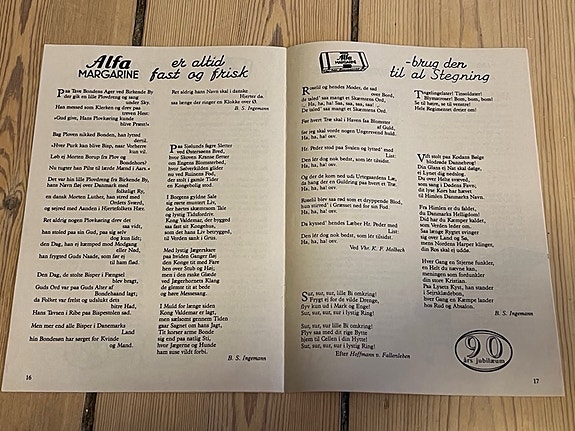 Alfa
MARGARINE
er altid
fast og frisk
Paa Tave Bondens Ager ved Birkende By
der gik en lille Plovdreng og sang
under Sky.
Han messed som Klerken og drev paa
treven Høs:
«Gud give, Hans Plovkøring kunde
blive Præst!»
Bag Ploven nikked Bonden, han lystred
derud.
«Hver Purk kan blive Bisp, naar Vorherre
kun vil.
Løb ej Morten Borup fra Plov og
Bondehors?
Nu tugter han Pilte til lærde Mænd i Aars.»
Det var hin lille Plovdreng fra Birkende By,
hans Navn fløj over Danmark med
folkeligt Ry,
en dansk Morten Luther, han stred med
Ordets Sværd,
og sejred med Aanden i Hjertefolkets Hær.
Ret aldrig nogen Plovkøring drev det
saa vidt,
han stoled paa sin Gud, paa sig selv
dog kun lidt;
den Dag, han ej kæmped mod Modgang
eller Nød,
han frygted Guds Naade, som før ej
til ham flød.
Den Dag, de stolte Bisper i Fængsel
blev bragt,
Guds Ord var paa Guds Alter af
Bondehaand lagt;
da Folket var frelst og udslukt dets
bitre Had,
Hans Tavsen i Ribe paa Bispestolen sad.
Men mer end alle Bisper i Danemarks
Land
hin Bondesøn har sørget for Kvinde
og Mand.
Ret aldrig hans Navn skal i danske
Hjerter dø.
saa længe der ringer en Klokke over Ø.
B. S. Ingemann
Paa Sjølunds fagre Sletter
ved Østersøens Bred,
hvor Skoven Kranse fletter
om Engens Blomsterbed,
hvor Sølverkilden glider
nu ved Ruinens Fod,
der stolt i gamle Tider
en Kongebolig stod.
I Borgens gyldne Sale
sig rørte munter Liv,
der hørtes skæmtsom Tale
og lystig Tidsfordriv.
Kong Valdemar, der bygged
saa fast sit Kongehus,
som det hans Liv betrygged,
til Verden sank i Grus.
Med lystig Jægerskare
paa hviden Ganger fløj
den Konge tit med Fare
hen over Stub og Høj;
men i den raske Glæde
ved Jægerhornets Klang
de glemte tit at bede
og høre Messesang.
I Muld for længe siden
Kong Valdemar er lagt,
men sælsomt gennem Tiden
gaar Sagnet om hans Jagt,
Tit korser arme Bonde
sig end paa natlig Sti,
hvor Jægerne og Hunde
ham suse vildt forbi.
B. S. Ingemann
16
Alfa
MARGARINE
-brug den
til al Stegning
Roselil og hendes Moder, de sad
over Bord,
de taled' saa mangt et Skæmtens Ord,
... Ha, ha, ha! Saa, saa, saa, saa! ...
De taled' saa mangt et Skæmtens Ord.
Ha, ha, ha! osv.
Før hvert Træ skal i Haven faa Blomster
af Guld,
før jeg skal vorde nogen Ungersvend huld.
Ha, ha, ha! osv.
Hr. Peder stod paa Svalen og lytted' med
List:
Den lér dog nok bedst, som lér tilsidst.
Ha, ha, ha! osv.
Og der de kom ned ud Urtegaardens Læ,
da hang der en Guldring paa hvert et Træ.
Ha, ha, ha! osv.
Roselil blev saa rød som et dryppende Blod,
hun stirred' i Græsset ned for sin Fod.
Ha, ha, ha! osv.
Da kyssed' hendes Læber Hr. Peder med
List:
Den lér dog nok bedst, som lér tilsidst.
Ha, ha, ha! osv.
Ved Chr. K. F. Molbech
Sur, sur, sur, lille Bi omkring!
Frygt ej for de vilde Drenge,
flyv kun ud i Mark og Enge!
Sur, sur, sur, sur i lystig Ring!
Sur, sur, sur, lille Bi omkring!
Flyv saa med dit rige Bytte
hjem til Cellen i din Hytte!
Sur, sur, sur, sur i lystig Ring!
Efter Hoffmann v. Fallersleben
Tingelingelater! Tinsoldater!
Blymatroser! Bom, bom, bom!
Se til højre, se til venstre!
Hele Regimentet drejer om!
Vift stolt paa Kodans Bølge
blodrøde Dannebrog!
Din Glans ej Nat skal dølge,
ej Lynet dig nedslog.
Du over Helte svæved,
som sang i Dødens Favn;
dit lyse Kors har hævet
til Himlen Danmarks Navn.
Fra Himlen er du faldet,
du Danmarks Helligdom!
Did har du Kæmper kaldet,
som Verden leder om.
Saa længe Rygtet svinger
sig over Land og Sø,
mens Nordens Harper klinger,
din Ros skal ej uddø.
Hver Gang en Stjerne funkler,
en Helt du nævne kan,
meningen som fordunkler
din store Kristian.
Paa Lysets Kyst, han stander
i Sejersklædebon,
hver Gang en Kæmpe lander
hos Rud og Absalon.
B. S. Ingemann
90
års jubilæum
17